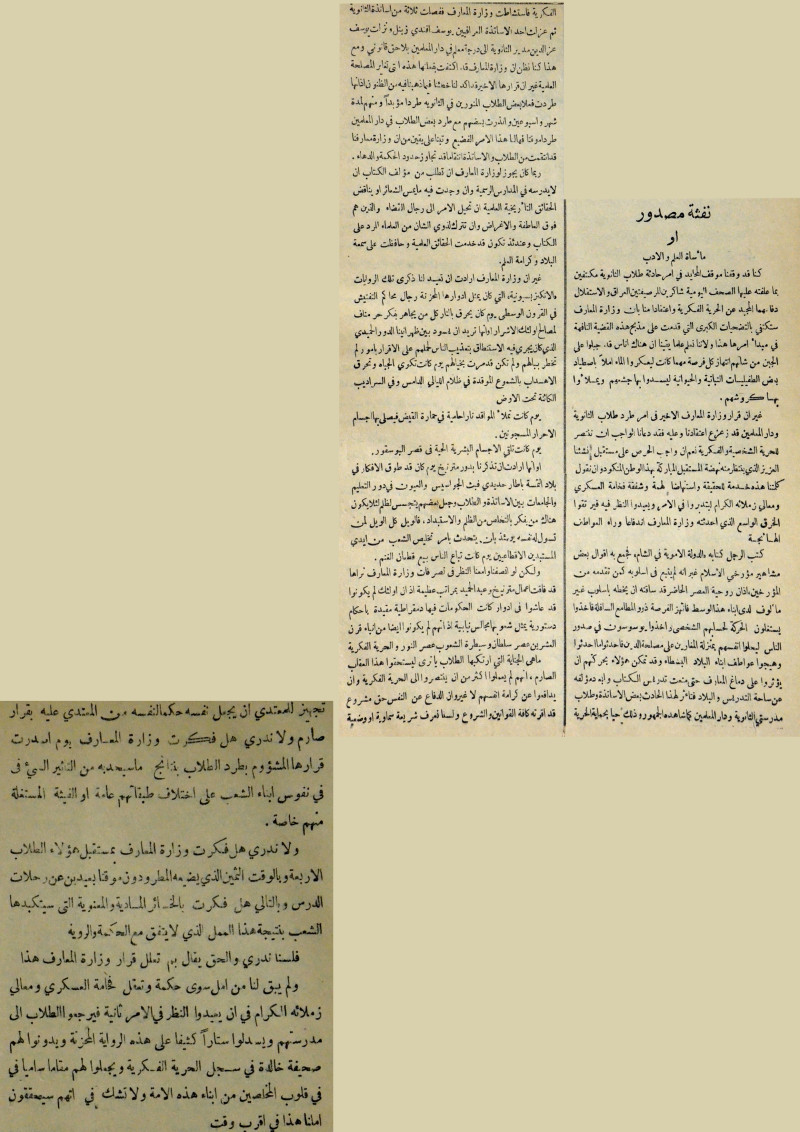 نفثة مصدور
او
مأساة العلم والادب
كنا قد وقفنا موقف المحايد في امر حادثة طلاب الثانوية مكتفين
بما علقته عليها الصحف اليومية شاكرين للرصيفتين العراق والاستقلال
دفاعهما المجيد عن الحرية الفكرية واعتقادا منا بان وزارة المعارف
ستكتفي بالتضحيات الكبرى التي قدمت على مذبح هذه القضية التافهة
في مبدأ امرها هذا ولاننا نعلم علما يقينا ان هناك اناس قد جبلوا على
الجبن من شأنهم انتهاز كل فرصة مهما كانت ليعكروا الماء املاً باصطياد
بعض الطفيليات النباتية والحيوانية ليسدوا بها جشعهم ويملأوا
بها كروشهم .
غير ان قرار وزارة المعارف الاخير في امر طرد طلاب الثانوية
ودار المعلمين قد زعزع اعتقادنا وعليه فقد دعانا الواجب ان ننتصر
للحرية الشخصية والفكرية نعم ان واجب الحرص على مستقبل نشئنا
العزيز الذي ينتظر منه نهضة المستقبل المباركة بهذا الوطن المنكود ان نقول
كلمتنا هذه خدمة للحقيقة واستنهاضا لهمة وشفقة فخامة العسكري
ومعالي زملائه الكرام ليتدبروا في الامر ويعيدوا النظر فيه فيرتقوا
الخرق الواسع الذي احدثته وزارة المعارف اندفاعا وراء العواطف
الهائجة
كتب الرجل كتابه «الدولة الاموية في الشام» فجمع به اقوال بعض
مشاهير مؤرخي الاسلام غير انه لم يتبع في اسلوبه كمن تقدمه من
المؤرخين، اذ ان روحية العصر الحاضر قد ساقته ان يخطه باسلوب غير
مألوف لدى ابناء هذا الوسط فانتهز الفرصة ذوو المطامع السافلة فاخذوا
يستغلون الحركة لحسابهم الشخصي واخذوا يوسوسون في صدور
الناس ليحلوا انفسهم بمنزلة المغارين على مصلحة الدين فاحدثوا ما احدثوا
وهيجوا عواطف ابناء البلاد البسطاء وقد تمكن هؤلاء بحركتهم ان
يؤثروا على دماغ المعارف حتى منعت تدريس الكتاب وابعدت مؤلفه
عن ساحة التدريس والبلاد فتأثر لهذا الحادث بعض الاساتذة وطلاب
مدرستي الثانوية ودار المعلمين كما شاهده الجمهور وذلك حبا بحماية الحرية
الفكرية فاستشاطت وزارة المعارف ففصلت ثلاثة من اساتذة الثانوية
ثم عزلت احد الاساتذة العراقيين يوسف افندي زينل ونزلت يوسف
عز الدين مدير الثانوية الى درجة معلم في دار المعلمين بلا حق قانوني ومع
هذا كنا نظن ان وزارة المعارف قد اكتفت بفعلتها هذه التي تغاير المصلحة
العلمية غير ان قرارها الاخير قد اكد لنا خطئنا فيما ذهبنا فيه من الظنون اذ انها
طردت فعلا بعض الطلاب المنورين في الثانوية طردا مؤبداً ومنهم لمدة
شهر واسبوعين وانذرت بعضهم مع طرد بعض الطلاب في دار المعلمين
طردا موقتا فهالنا هذا الامر الفضيع وتيقنا على يقين من ان وزارة معارفنا
قد انتقمت من الطلاب والاساتذة انتقاما قد تجاوز حدود الحكمة والدهاء .
ربما كان يجوز لوزارة المعارف ان تطلب من مؤلف الكتاب ان
لا يدرسه في المدارس الرسمية وان وجدت فيه ما يمس الشعائر او يناقض
الحقائق التأريخية العلمية ان تحيل الامر الى رجال القضاء والذين هم
فوق العاطفة والاغراض وان تترك لذوي الشان من العلماء الرد على
الكتاب وعندئذ تكون قد خدمت الحقائق العلمية وحافظت على سمعة
البلاد وكرامة العلم.
غير ان وزارة المعارف ارادت ان تعيد لنا ذكرى تلك الروايات
«الانكيزيسيونية» التي كان يمثل ادوارها المحزنة رجال محاكم التفتيش
في القرون الوسطى يوم كان يحرق بالنار كل من يجاهر بفكر حر مناف
لمصالح اولئك الاشرار او انها تريد ان يسود بين ظهرانينا الدور الحميدي
الذي كان يجري فيه الاستنطاق بتعذيب الناس لحملهم على الاقرار بامور لم
تخطر ببالهم ولم تكن قد مرت بخيالهم يوم كانت تكوي الجباه وتحرق
الاهداب بالشموع الموقدة في ظلام الليالي الدامس وفي السراديب
الكائنة تحت الارض
يوم كانت تملأ المواقد نارا حامية في حمارة القيض فيصلى بها اجسام
الاحرار المسجونين .
يوم كانت تلقى الاجسام البشرية الحية في قصر البوسفور.
او انها ارادت ان تذكرنا بدور مترنيخ يوم كان قد طوق الافكار في
بلاد النمسة باطار حديدي فبث الجواسيس والعيون في دور التعليم
والجامعات بين الاساتذة والطلاب وجعل بعضهم يتجسس لظلم لئلا يكون
هناك من يفكر بالتخلص من الظلم والاستبداد، فالويل كل الويل لمن
تسول له نفسه يومئذ بان يتحدث بامر تخليص الشعب من ايدي
المستبدين الاقطاعيين يوم كانت تباع الناس بيع قطعان الغنم .
ولكن لو انصفنا وامعنا النظر في تصرفات وزارة المعارف نراها
قد فاقت اعمال مترنيخ وعبد الحميد بمراتب عظيمة اذ ان اولئك لم يكونوا
قد عاشوا في ادوار كانت الحكومات فيها دمقراطية مقيدة باحكام
دستورية يمثل شعوبها مجالس نيابية اذ انهم لم يكونوا ايضا من ابناء قرن
العشرين عصر سلطان وسيطرة الشعوب عصر النور والحرية الفكرية
ما هي الجناية التي ارتكبها الطلاب يا ترى ليستحقوا هذا العقاب
الصارم ، انهم لم يعملوا اكثر من ان ينتصروا الى الحرية الفكرية وان
يدافعوا عن كرامة انفسهم لا غير وان الدفاع عن النفس حق مشروع
قد اقرته كافة القوانين والشروع ولسنا نعرف شريعة سماوية او وضعية
تجيز للمعتدي ان يجعل نفسه حكما لنفسه من المعتدي عليه بقرار
صارم ولا ندري هل فكرت وزارة المعارف يوم اصدرت
قرارها المشؤوم بطرد الطلاب بنتائج ما سيحدثه من التأثير السيء في
في نفوس ابناء الشعب على اختلاف طبقاتهم عامة او الفيئة المستغلة
منهم خاصة .
ولا ندري هل فكرت وزارة المعارف بمستقبل هؤلاء الطلاب
الاربعة وبالوقت الثمين الذي يضيعه المطرودون موقتا بعيدين عن رحلات
الدرس وبالتالي هل فكرت بالخسائر المادية والمعنوية التي سيتكبدها
الشعب بنتيجة هذا العمل الذي لا يتفق مع الحكمة والروية
فلسنا ندري والحق يقال بم تعلل قرار وزارة المعارف هذا
ولم يبق لنا من امل سوى حكمة وتعقل فخامة العسكري ومعالي
زملائه الكرام في ان يعيدوا النظر في الامر ثانية فيرجعوا الطلاب الى
مدرستهم ويسدلوا ستاراً كثيفا على هذه الرواية المحزنة ويدونوا لهم
صحيفة خالدة في سجل الحرية الفكرية ويجعلوا لهم مقاما ساميا في
في قلوب المخلصين من ابناء هذه الامة ولا نشك في انهم سيحققون
املنا هذا في اقرب وقت